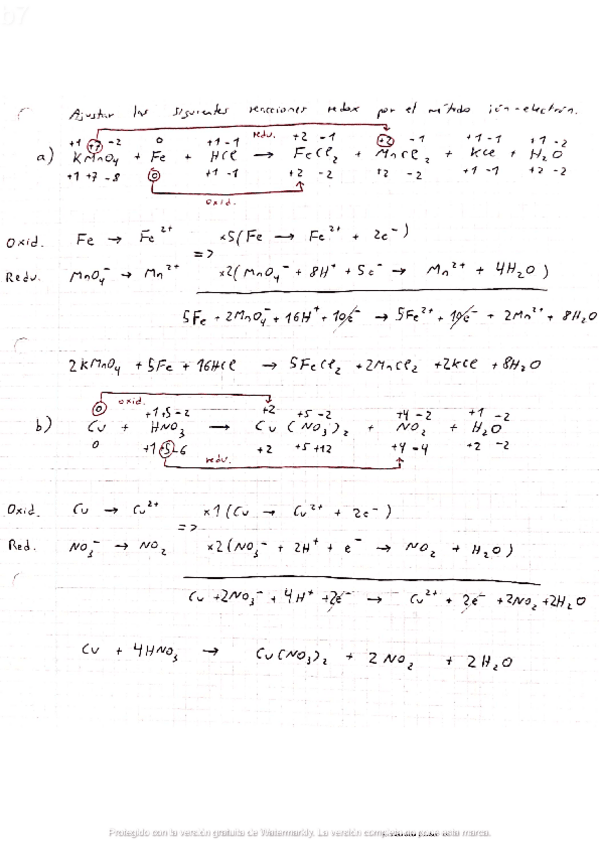 67
Ajustar las siguientes reacciones redox por el método ión-electrón.
redu.
+1 +7 -2 0 +1 -1 +2 -1 +2 -1 +1 -1 +1 -2
a) KMnO₄ + Fe + HCl → FeCl₂ + MnCl₂ + KCl + H₂O
+1 +7 -8 0 +1 -1 +2 -2 +2 -2 +1 -1 +2 -2
oxid.
Oxid. Fe → Fe²⁺ ×5(Fe → Fe²⁺ + 2e⁻)
=>
Redu. MnO₄⁻ → Mn²⁺ ×2(MnO₄⁻ + 8H⁺ + 5e⁻ → Mn²⁺ + 4H₂O)
5Fe + 2MnO₄⁻ + 16H⁺ + 10e⁻ → 5Fe²⁺ + 10e⁻ + 2Mn²⁺ + 8H₂O
2KMnO₄ + 5Fe + 16HCl → 5FeCl₂ + 2MnCl₂ + 2KCl + 8H₂O
oxid.
0 +1 +5 -2 +2 +5 -2 +4 -2 +1 -2
b) Cu + HNO₃ → Cu(NO₃)₂ + NO₂ + H₂O
0 +1 +5 -6 +2 +5 +12 +4 -4 +2 -2
redu.
Oxid. Cu → Cu²⁺ ×1(Cu → Cu²⁺ + 2e⁻)
=>
Red. NO₃⁻ → NO₂ ×2(NO₃⁻ + 2H⁺ + e⁻ → NO₂ + H₂O)
Cu + 2NO₃⁻ + 4H⁺ + 2e⁻ → Cu²⁺ + 2e⁻ + 2NO₂ + 2H₂O
Cu + 4HNO₃ → Cu(NO₃)₂ + 2NO₂ + 2H₂O
Protegido con la versión gratuita de Watermarkly. La versión completa no pone esta marca.